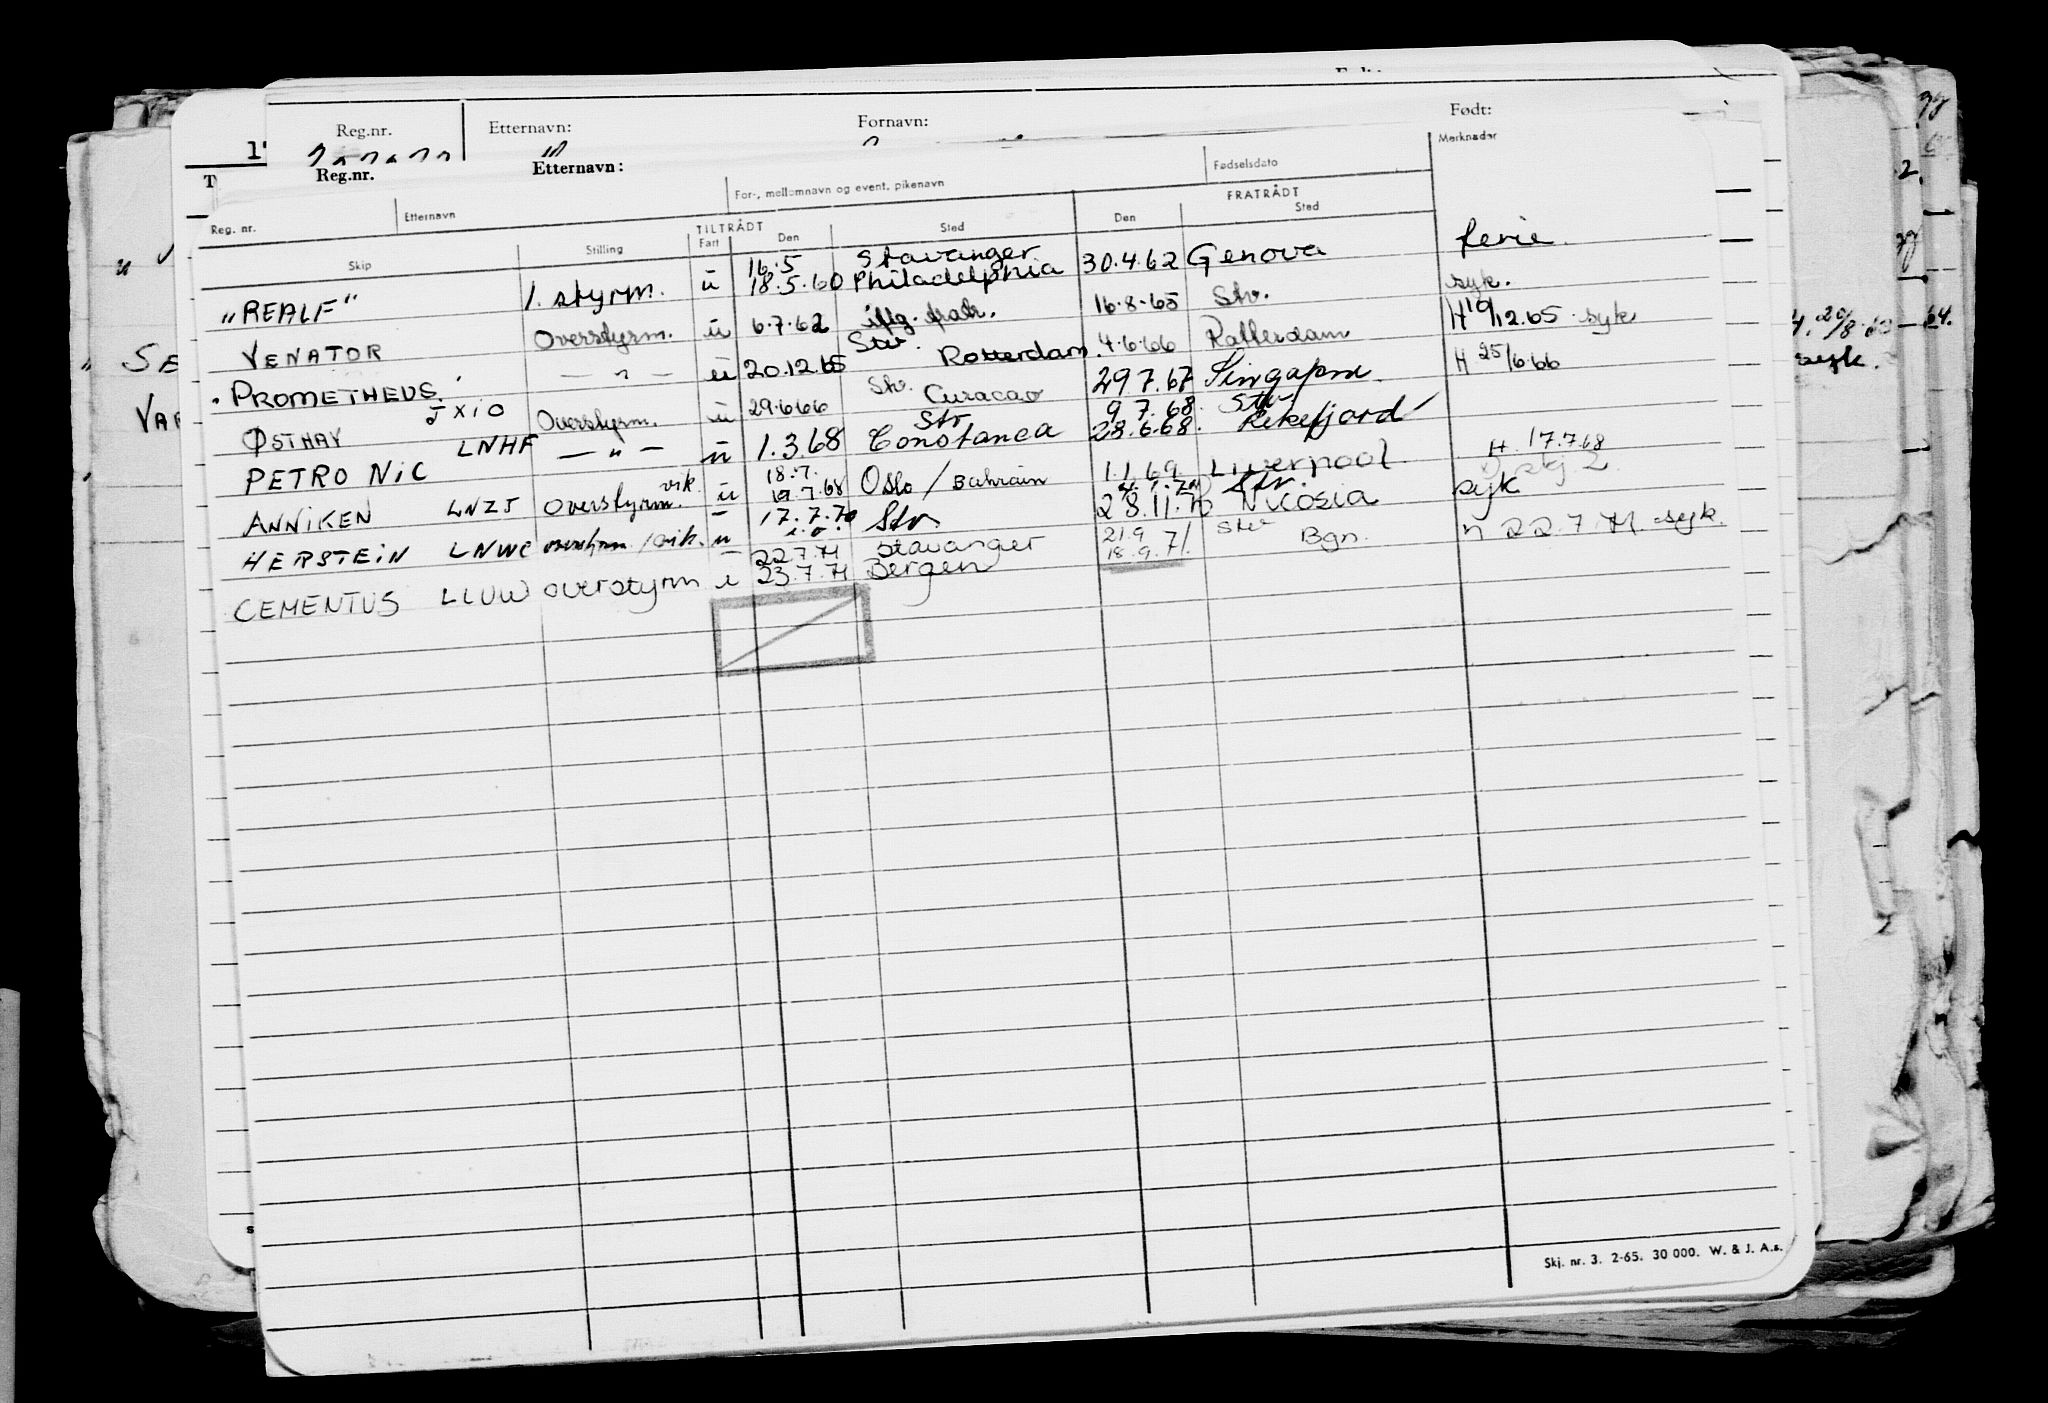 Reg.nr. Etternavn: Fornavn: Født:
Reg.nr. Etternavn:
Reg. nr. Etternavn For-, mellomnavn og event. pikenavn Fødselsdato Merknader
TILTRÅDT FRATRÅDT
Skip Stilling Fart Den Sted Den Sted
16.5 Stavanger
"REALF" 1. styrm. u 18.5.60 Philadelphia 30.4.62 Genova ferie.
VENATOR Overstyrm. u 6.7.62 iflg. fratr. 16.8.65 Stv. syk.
PROMETHEUS. — " — u 20.12.65 Stv. Rotterdam. 4.6.66 Rotterdam H 19/12.65 syk
ØSTHAV JXIO Overstyrm. u 29.6.66 Stv. Curacao 29.7.67 Singapore H 25/6.66
Stv 9.7.68. Stv
PETRO NIC LNHF — " — u 1.3.68 Constanca 28.6.68. Rekefjord
18.7.
ANNIKEN LNZJ Overstyrm. vik. u 19.7.68 Oslo / Bahrain 1.1.69 Liverpool H. 17.7.68
17.7.70 Stv.
HERSTEIN LNWC u Stv. 28.11.70 Nicosia syk
22.7.71 Stavanger 21.9 Stv
CEMENTUS LLUW overstyrm u 23.7.71 Bergen 18.9.71. Bgn. n 22.7.71. syk.
SE
VAR
syk.
Skj. nr. 3. 2-65. 30 000. W. & J. A.s.